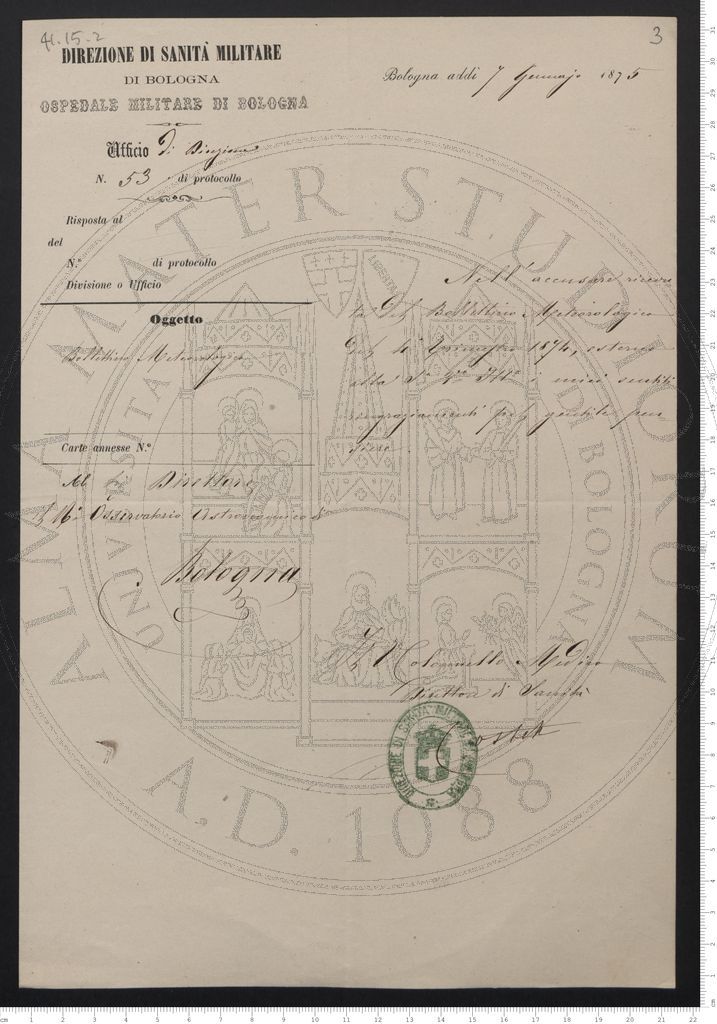 41.15-2
3
DIREZIONE DI SANITÀ MILITARE
DI BOLOGNA
OSPEDALE MILITARE DI BOLOGNA
Bologna addì 7 Gennajo 1875
Ufficio Di Direzione
N. 53 di protocollo
Risposta al
del
N.° di protocollo
Divisione o Ufficio
Oggetto
Bollettino Meteorologico
Carte annesse N.°
Al Direttore
Osservatorio Astronomico di
Bologna
Nell' accusare ricevu
ta Del Bollettino Meteorologico
Del 1874, esterno
alla S. Ill. i miei sentiti
ringraziamenti pel gentile pen
siero.
Il Colonnello Medico
Direttore di Sanità
DIREZIONE DI SANITÀ MILITARE
ALMA MATER STUDIORUM
UNIVERSITÀ DI BOLOGNA
LIBERTAS
A.D. 1088